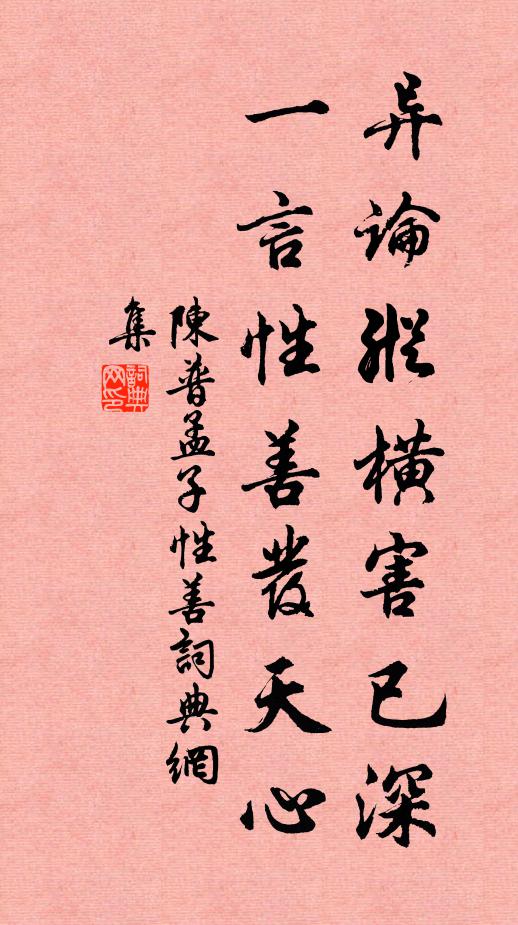 异論縱橫害已深
一言性善發天心
陳普孟子性善詞典網
集
詞典網印